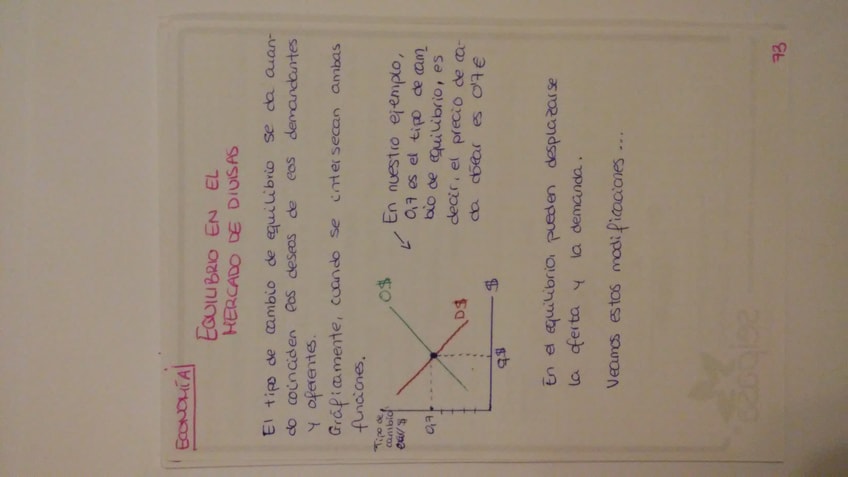 ECONOMÍA
EQUILIBRIO EN EL
MERCADO DE DIVISAS
El tipo de cambio de equilibrio se da cuan-
do coinciden los deseos de los demandantes
y oferentes.
Gráficamente, cuando se intersecan ambas
funciones.
Tipo de
cambio
eur/$
0,7
O$
D$
q$
$
↙ En nuestro ejemplo,
0,7 es el tipo de cam
bio de equilibrio, es
decir, el precio de ca-
da dólar es 0'7€
En el equilibrio, pueden desplazarse
la oferta y la demanda.
Veamos estas modificaciones...
73